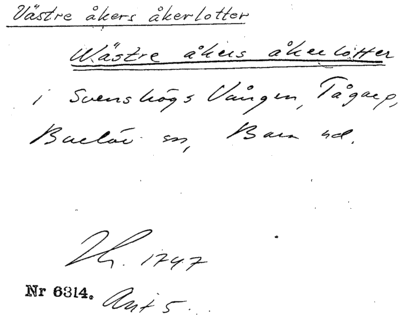 Västre åkers åkerlotter
Wästre åkers åkerlotter
i Svenshögs Vången, Tågarp,
Burlöv sn, Bara hd.
Lh. 1747
Nr 6314. Akt 5.